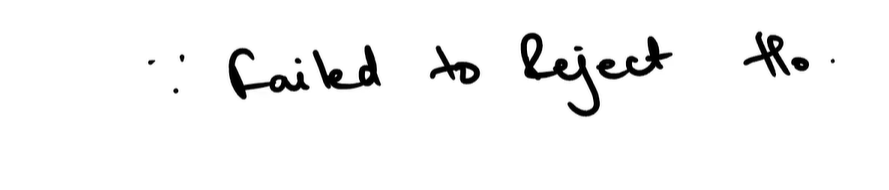 ∵ Failed to Reject H₀.